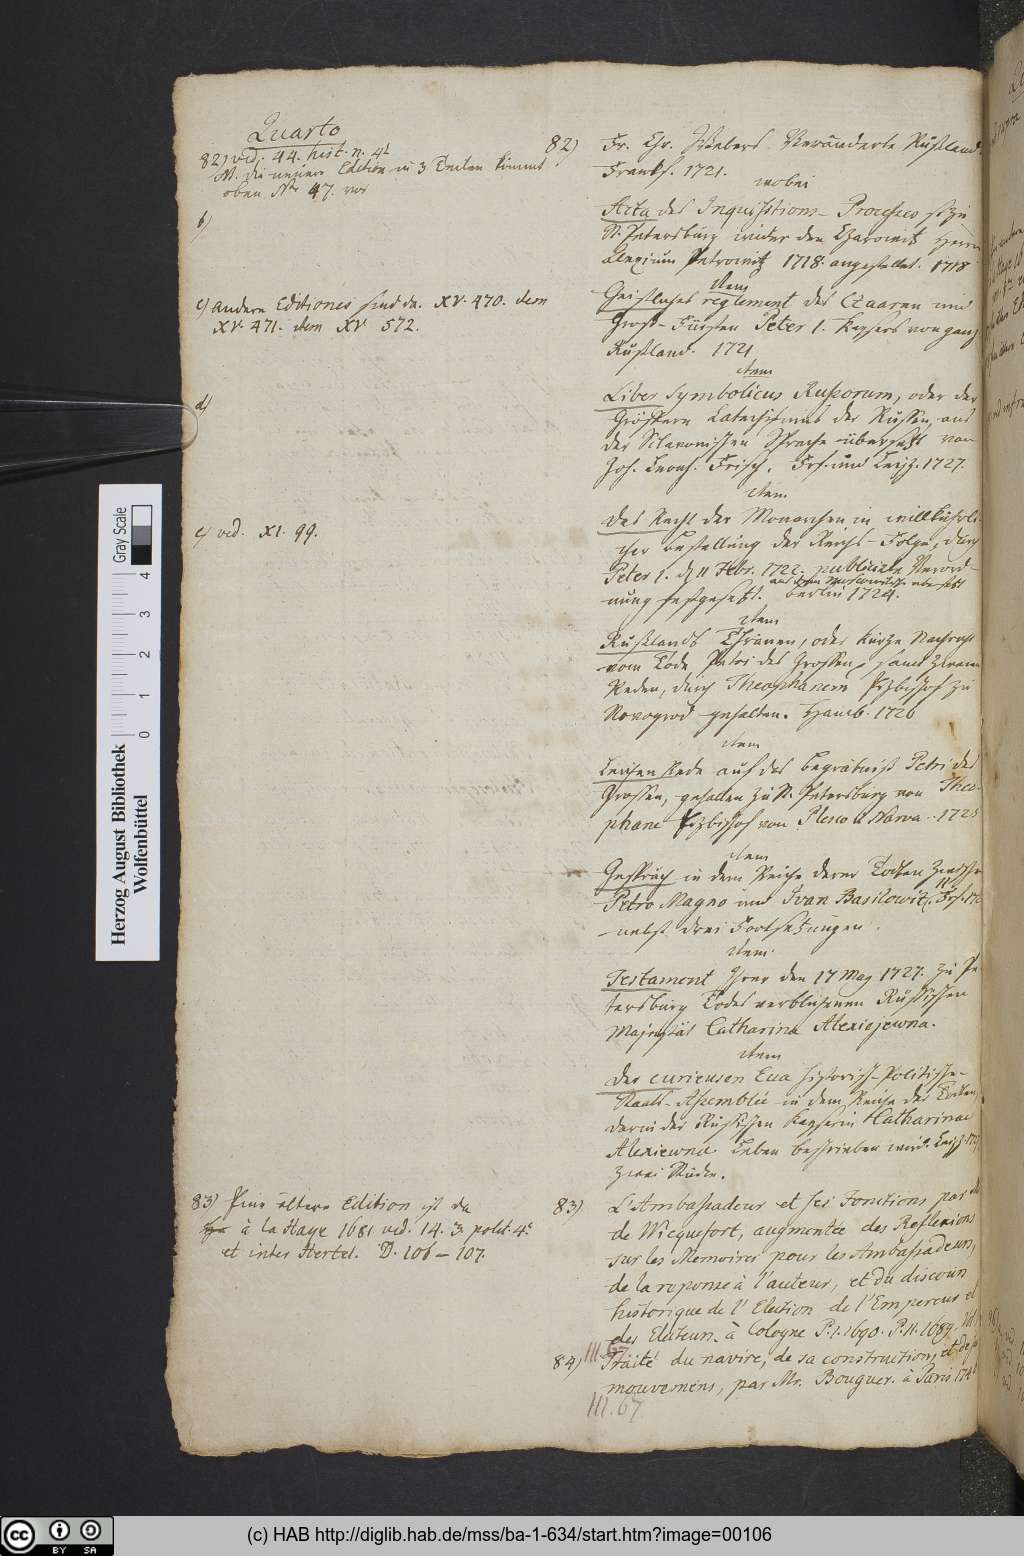 Quarto
82) vid. 44. hist. n. 4t
NB. die neuere Edition in 3 Theilen kommt
oben No 47. vor
b)
c) andere Editiones sind da. XV. 470. item
XV. 471. item XV 572.
d)
e) vid. XI. 99.
83) Eine ältere Edition ist da
à la Haye 1681 vid. 14. 3. polit. 4°
et inter Hertel. D. 106-107.
82) Fr. Chr. Webers Verändertes Rußland.
Frankf. 1721.
wobei
Acta des Inquisitions-Processes so zu
St. Petersburg wider den Czarowitz Herrn
Alexium Petrowitz 1718. angestellet. 1718
item
Geistliches reglement des Czaaren und
Groß-Fürsten Peter I. Keysers von ganz
Rußland. 1721
item
Liber Symbolicus Russorum, oder der
Größere Catechismus der Russen, aus
der Sclavonischen Sprache übersetzt von
Joh. Leonh. Frisch. Frf. und Leipz. 1727.
item
Das Recht der Monarchen in willkührli-
cher Bestellung der Reichs-Folge, durch
Peter I. d. 11 Febr. 1722. publicirte Verord-
aus dem Moscowitisch. übersetzt
nung festgesetzt. Berlin 1724.
item
Rußlands Thränen, oder kurze Nachricht
vom Tode Petri des Grossen, samt zween
Reden, durch Theophanem Erzbischof zu
Novogrod gehalten. Hamb. 1726
item
Leichen Rede auf das Begräbniß Petri des
Grossen, gehalten zu St. Petersburg von Theo-
phane Erzbischof von Plesco u Narva. 1725
item
Gespräch in dem Reiche derer Todten zwischen
Petro Magno und Ivan Basilowitz. Frf.
nebst drei Fortsetzungen.
item
Testament Ihrer den 17 May 1727. zu Pe-
tersburg Todes verblichenen Rußischen
Majestät Catharina Alexiejewna.
item
Der curieusen Eva historisch-Politische
Staats-Assemblée in dem Reiche der Todten,
darin der Rußischen Keyserin Catharinae
Alexiewna Leben beschrieben wird. Leipz.
zwei Stücke.
83) L'Ambassadeur et ses Fonctions par Mr
de Wicquefort, augmentée des Reflexions
sur les Memoires pour les Ambassadeurs,
de la reponse à l'auteur, et du discours
historique de l'Election de l'Empereur et
des Electeurs. à Cologne P. I. 1690. P. II. 1689.
III. 67
84) Traité du navire, de sa construction, et de ses
mouvemens, par Mr. Bouguer. à Paris
III. 67
Herzog August Bibliothek
Wolfenbüttel
0 1 2 3 4
Gray Scale
(c) HAB http://diglib.hab.de/mss/ba-1-634/start.htm?image=00106
cc BY SA